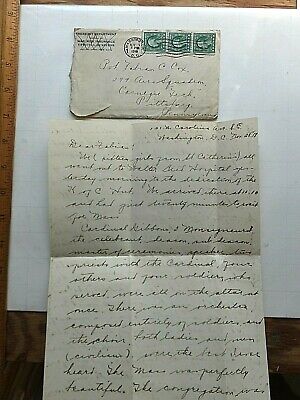 WASHINGTON
1918
D.C.
Pvt. Fabian C. Cox
299 Aero Squadron
Carnegie Tech.
Pittsburg
Pennsylvania
101 N. Carolina Ave. S.E.
Washington, D.C. Nov.
Dear Fabian:
We (fifteen girls from St Catherine's) all
went out to Walter Reed Hospital yes-
terday morning to the dedication of the
K of C Hut. We arrived there at 10:10
and had just twenty minutes to wait
for Mass
Cardinal Gibbons, 2 Monseigneurs,
the celebrant, deacon, sub deacon,
master of ceremonies, speaker, two
priests with the Cardinal, four
others and four soldiers, who
served, were all on the altar at
once. There was an orchestra
composed entirely of soldiers, and
the choir, both ladies and men
(civilians), were the best I ever
heard. The Mass was perfectly
beautiful. The congregation was